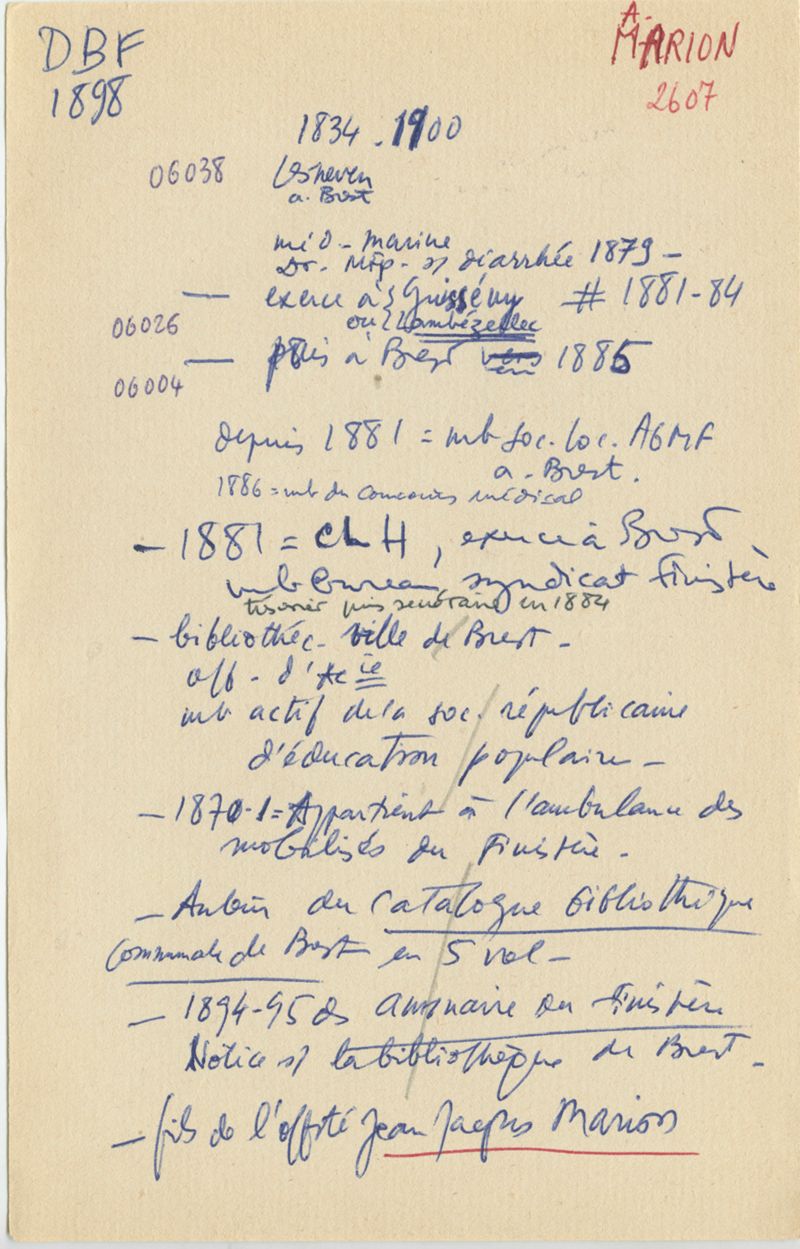 DBF
1898
A.
MARION
2607
1834 - 1900
06038 Lesneven
a. Brest
méd - marine
Dr. Mtp - s/ diarrhée 1879 -
— exerce à Guissény # 1881-84
06026 ou Lambézellec
— puis à Brest vers en 1885
06004
depuis 1881 = mb soc. loc. AGMF
a. Brest.
1886 = mb du concours médical
- 1881 = ch H, exerce à Brest
mb bureau syndicat Finistère
trésorier puis secrétaire en 1884
- bibliothéc - ville de Brest -
off - d'Acie
mb actif de la soc. républicaine
d'éducation populaire -
- 1870-1 = Appartient à l'ambulance des
mobilisés du Finistère.
- Auteur du Catalogue bibliothèque
Communale de Brest en 5 vol -
- 1894-95 ds annuaire du Finistère
Notice s/ la bibliothèque de Brest -
- fils de l'offsté Jean Jacques Marion